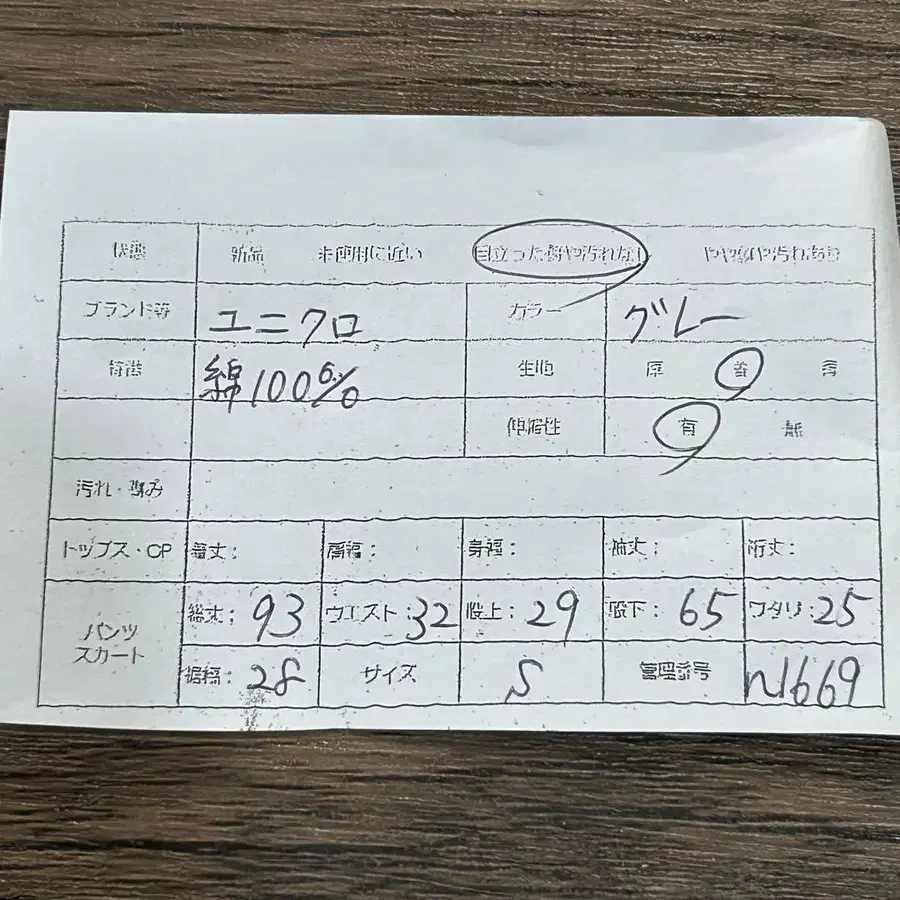 状態 新品 未使用に近い 目立った傷や汚れなし やや傷や汚れあり
ブランド等 ユニクロ カラー グレー
特徴 綿100% 生地 厚 普
伸縮性 有 無
汚れ・傷み
トップス・OP 着丈: 肩幅: 身幅: 袖丈: 裄丈:
パンツ スカート 総丈: 93 ウエスト: 32 股上: 29 股下: 65 ワタリ: 25
裾幅: 28 サイズ S 管理番号 n1669